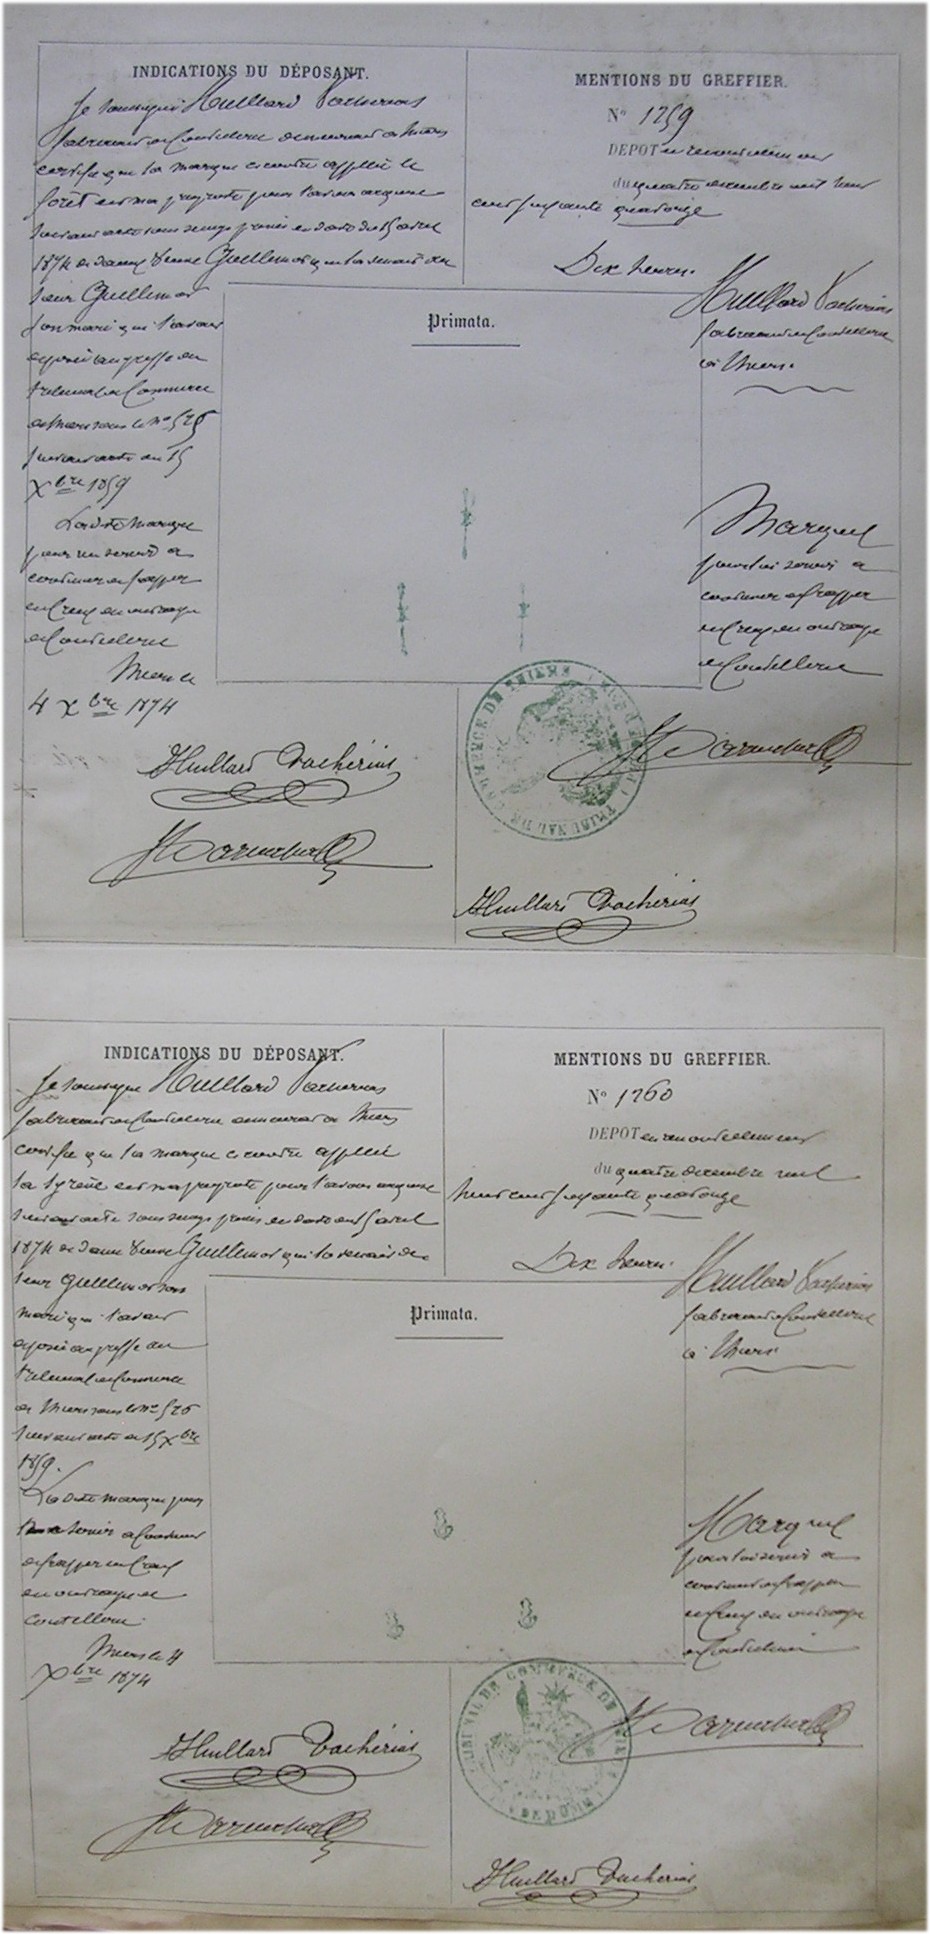 INDICATIONS DU DÉPOSANT.
Je soussigné Huillard Vachérias
fabricant de Coutellerie demeurant à Thiers
certifie que la marque ci contre appelée le
forêt est ma propriété pour l'avoir acquise
suivant acte sous seings privés en date du 15 avril
1874 de dame Veuve Guillemot qui la tenait du
sieur Guillemot
son mari qui l'avait
déposée au greffe du
tribunal de Commerce
de Thiers sous le no 525
suivant acte du 15
Xbre 1859
Ladite Marque
pour me servir à
continuer de frapper
en Creux en ouvrage
de Coutellerie
Thiers le
4 Xbre 1874
Huillard Vachérias
MENTIONS DU GREFFIER.
No 1759
DEPOT en renouvellement
du quatre décembre mil huit
cent soixante quatorze
Dix heures.
Huillard Vachérias
fabricant de Coutellerie
à Thiers.
Primata.
Marque
pour lui servir à
continuer de frapper
en Creux en ouvrage
de Coutellerie
TRIBUNAL DE COMMERCE DE THIERS
Huillard Vachérias
INDICATIONS DU DÉPOSANT.
Je soussigné Huillard Vachérias
fabricant de Coutellerie demeurant à Thiers
certifie que la marque ci contre appelée
la Syrène est ma propriété pour l'avoir acquise
suivant acte sous seings privés en date du 15 avril
1874 de dame Veuve Guillemot qui la tenait de
sieur Guillemot son
mari qui l'avait
déposée au greffe du
tribunal de Commerce
de Thiers sous le no 526
suivant acte du 15 Xbre
1859.
Ladite marque pour
servir à Continuer
de frapper en Creux
en ouvrage de
Coutellerie
Thiers le 4
Xbre 1874
Huillard Vachérias
MENTIONS DU GREFFIER.
No 1760
DEPOT en renouvellement
du quatre décembre mil
huit cent soixante quatorze
Dix heures.
Huillard Vachérias
fabricant de Coutellerie
à Thiers
Primata.
Marque
pour lui servir à
continuer de frapper
en Creux en ouvrage
de Coutellerie
TRIBUNAL DE COMMERCE DE THIERS
Huillard Vachérias